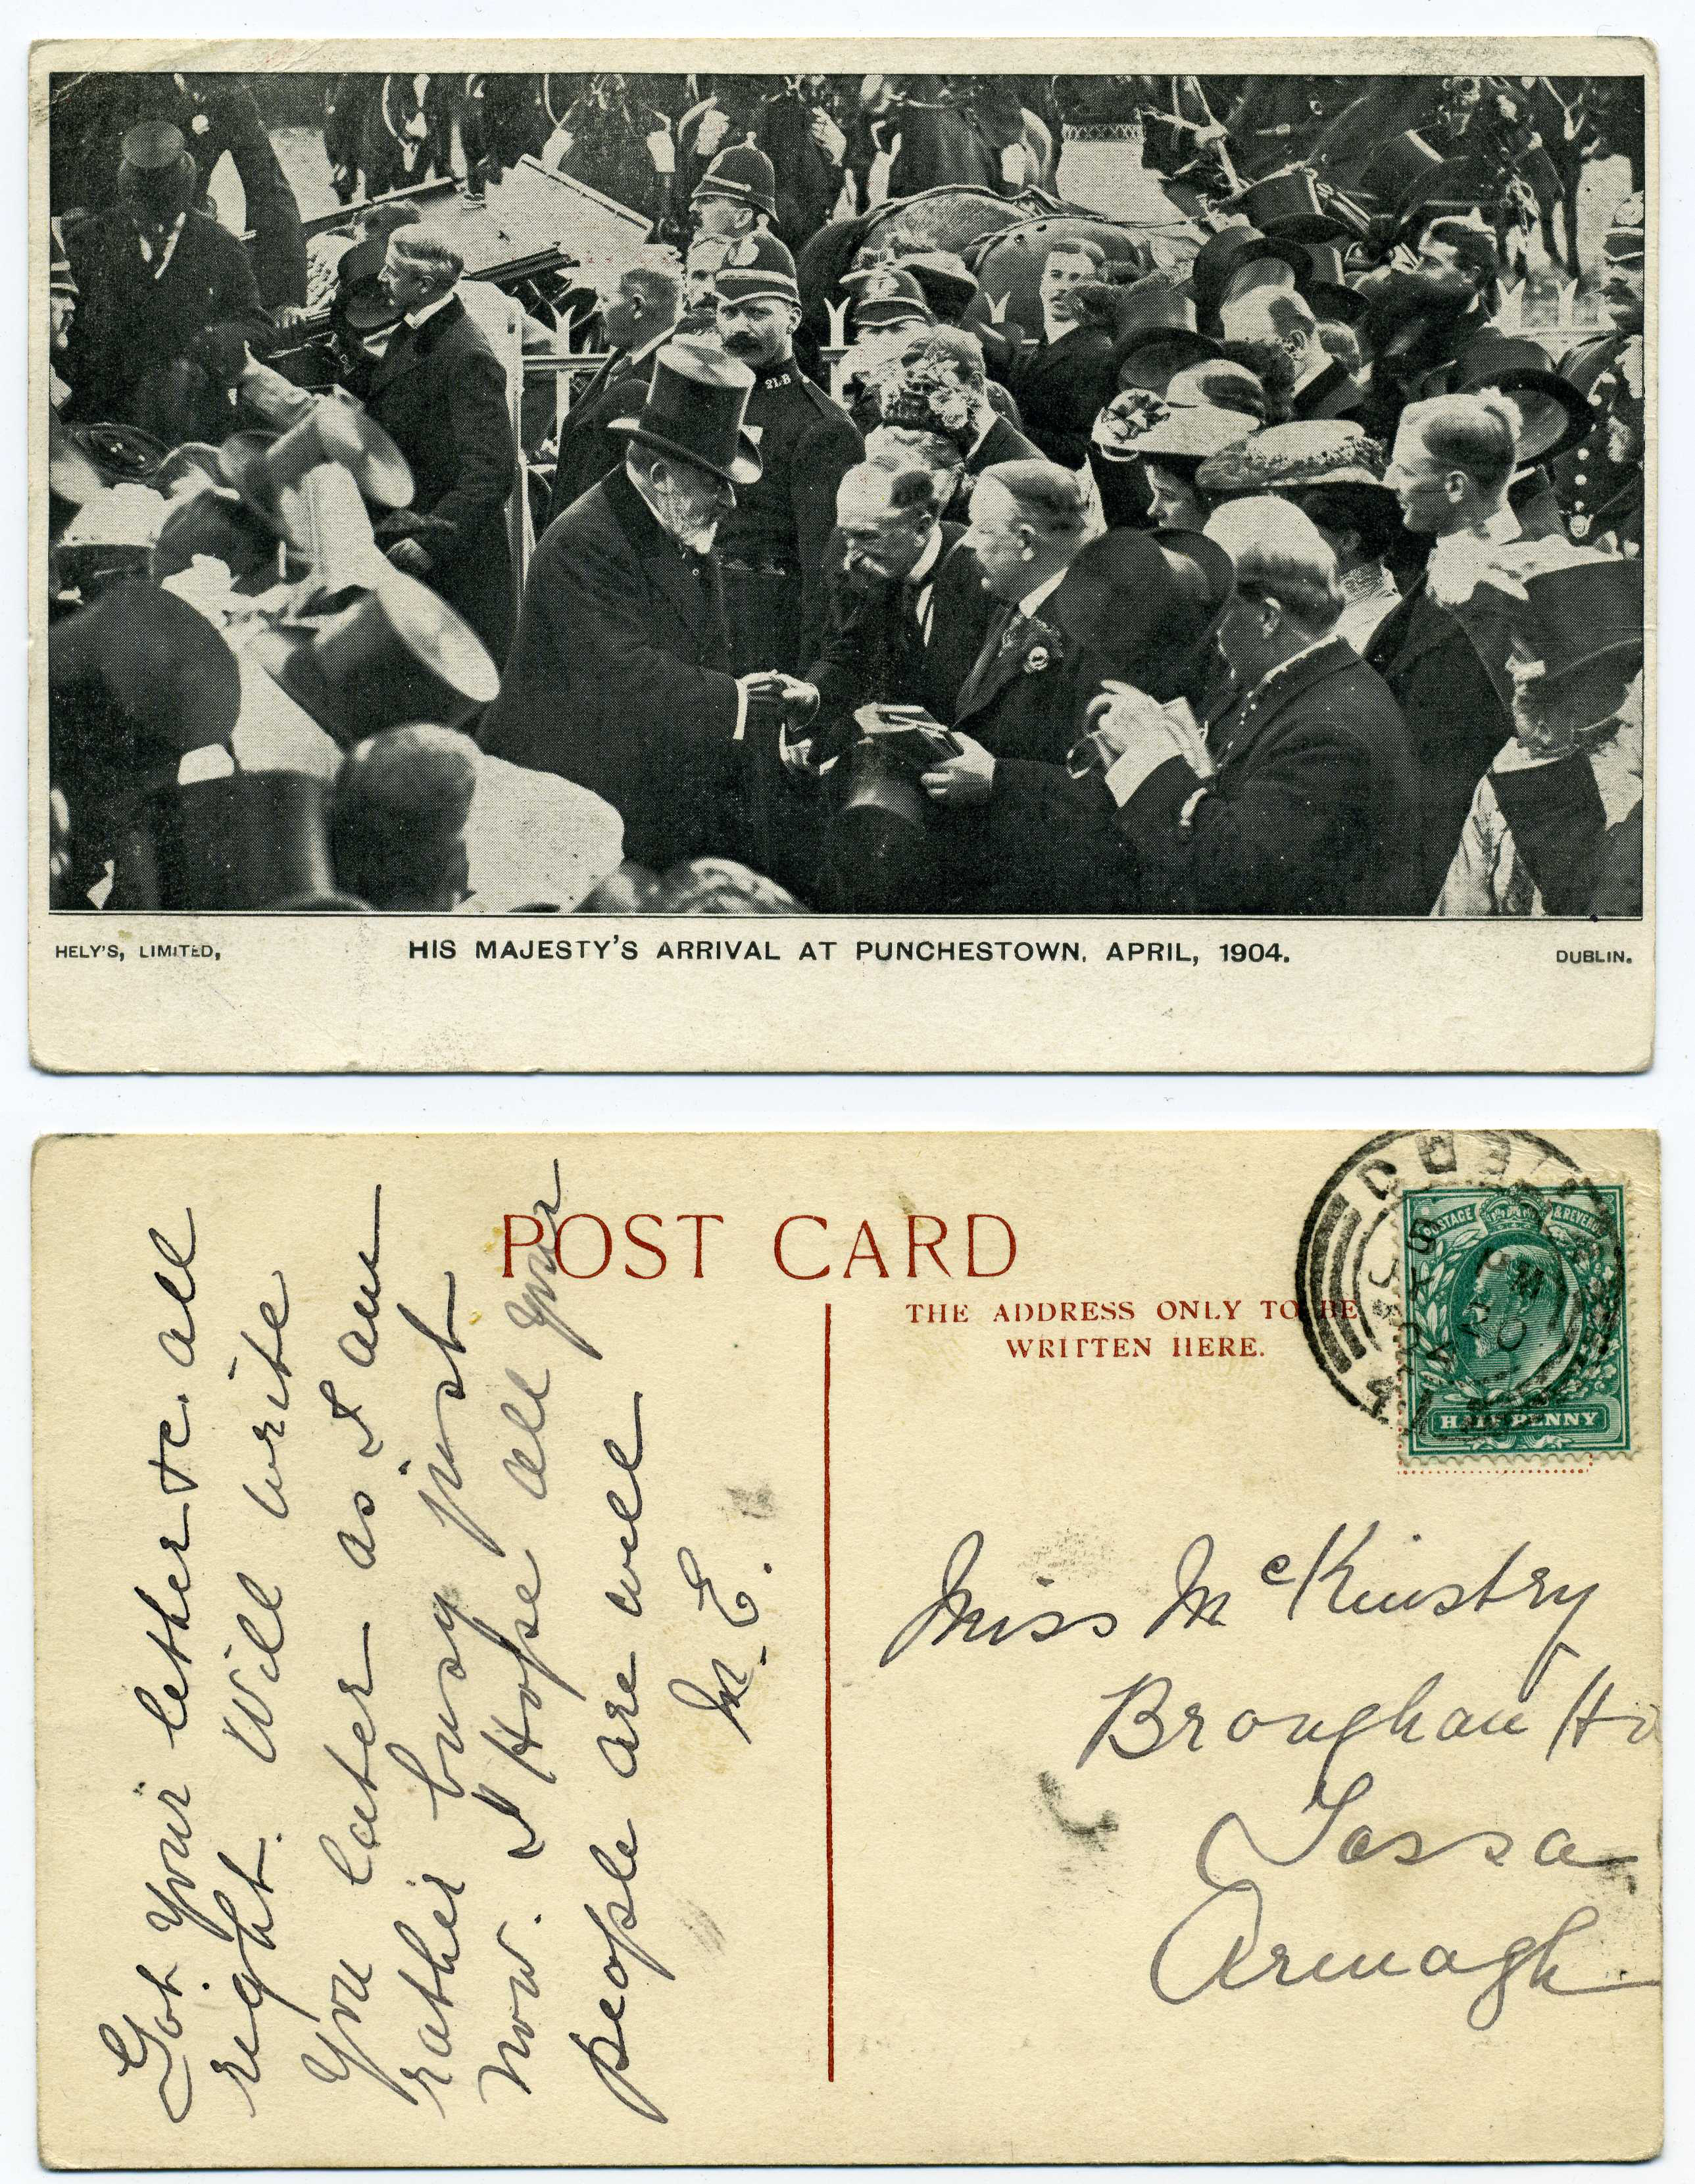 21.B
HELY'S, LIMITED,
HIS MAJESTY'S ARRIVAL AT PUNCHESTOWN, APRIL, 1904.
DUBLIN.
POST CARD
THE ADDRESS ONLY TO BE
WRITTEN HERE.
POSTAGE & REVENUE
HALFPENNY
Got your letter &c. all
right. Will write
you later as I am
rather busy just
now. I Hope all your
people are well
M. E.
Miss McKinstry
Broughan Ho
Tassa
Armagh.